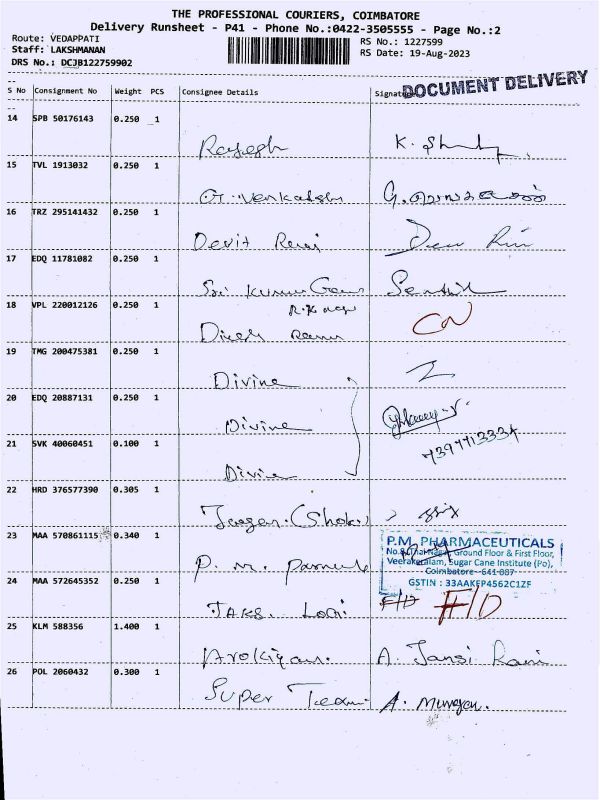 THE PROFESSIONAL COURIERS, COIMBATORE
Delivery Runsheet - P41 - Phone No.:0422-3505555 - Page No.:2
Route: VEDAPPATI
RS No.: 1227599
Staff: LAKSHMANAN
RS Date: 19-Aug-2023
DRS No.: DCJB122759902
DOCUMENT DELIVERY
S No Consignment No Weight PCS Consignee Details Signature
14 SPB 50176143 0.250 1
Rajesh K.
15 TVL 1913032 0.250 1
G. Venkatesh
16 TRZ 295141432 0.250 1
17 EDQ 11781082 0.250 1
Sri Kumar Senthil
18 VPL 220012126 0.250 1
CN
19 TMG 200475381 0.250 1
Divine
20 EDQ 20887131 0.250 1
Divine
21 SVK 40060451 0.100 1
7397713334
Divine
22 HRD 376577390 0.305 1
23 MAA 570861115 0.340 1
P.M. PHARMACEUTICALS
Ground Floor & First Floor,
Veerakeralam, Sugar Cane Institute (Po),
Coimbatore - 641 007
GSTIN : 33AAKFP4562C1ZF
P. M.
24 MAA 572645352 0.250 1
25 KLM 588356 1.400 1
A. Jansi Rani
26 POL 2060432 0.300 1
Super Team A. Murugan.